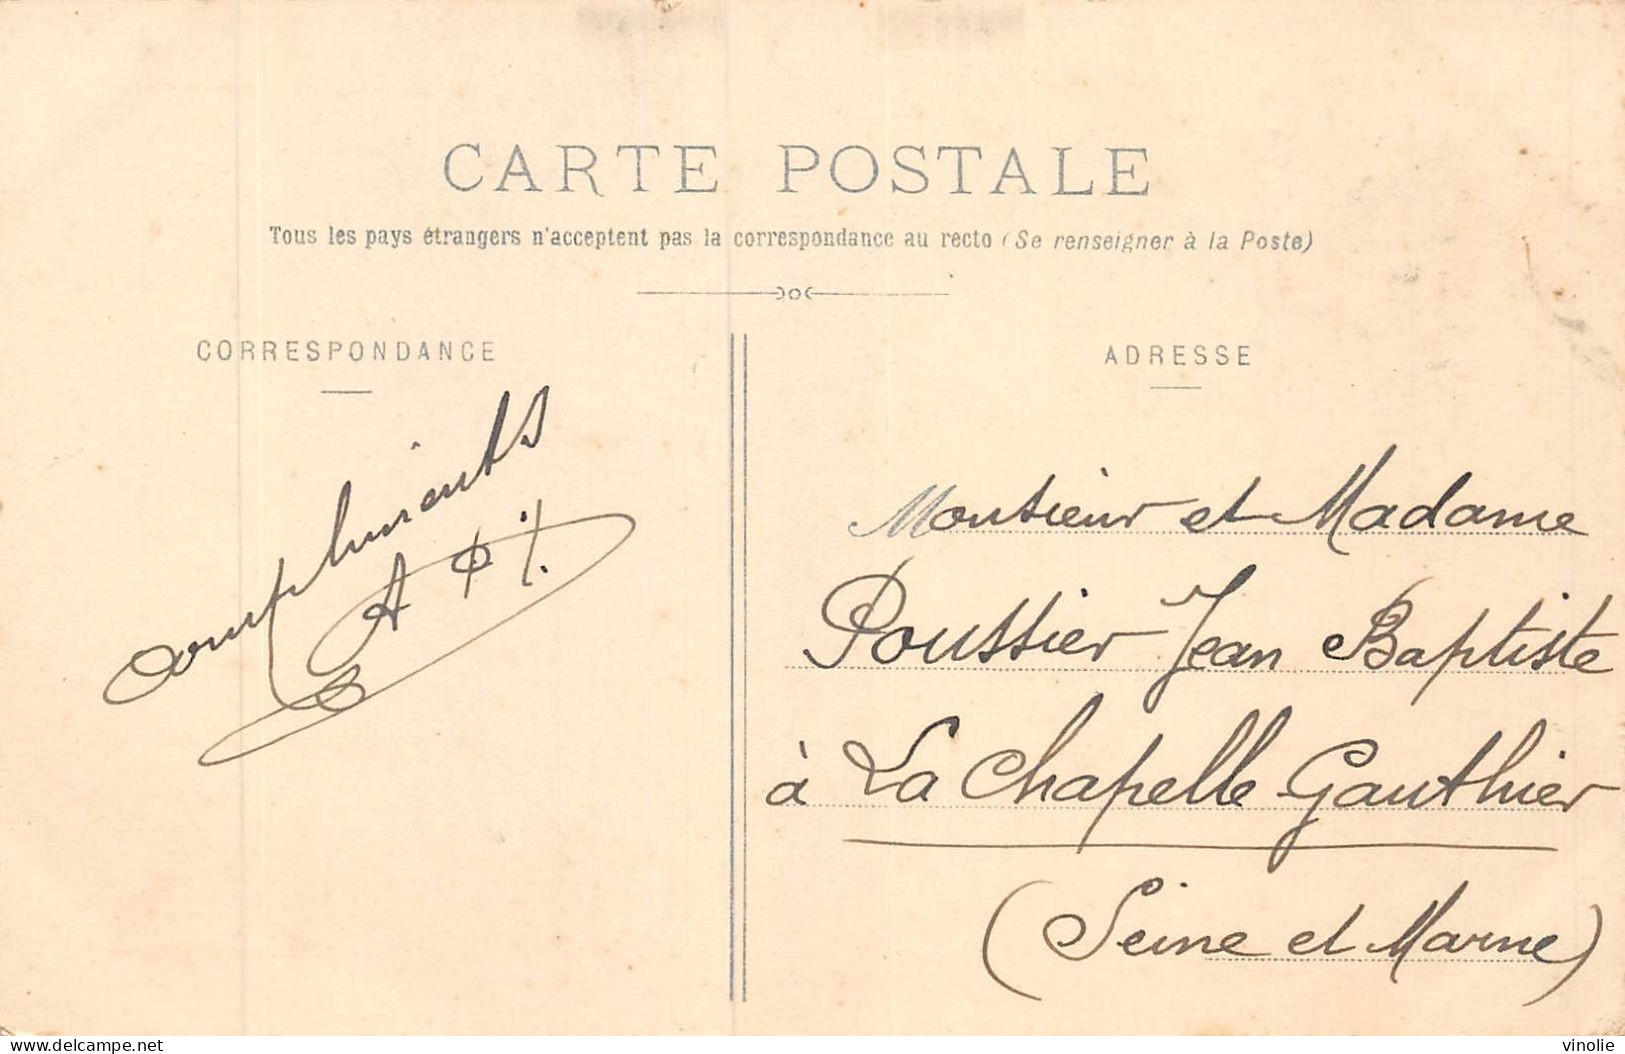 CARTE POSTALE
Tous les pays étrangers n'acceptent pas la correspondance au recto (Se renseigner à la Poste)
CORRESPONDANCE
compliments
ADRESSE
Monsieur et Madame
Poussier Jean Baptiste
à La Chapelle Gauthier
(Seine et Marne)
delcampe.net
vinolie